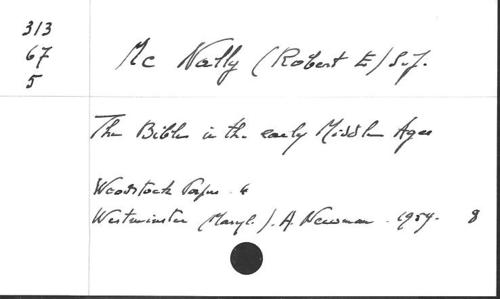 313
67
5
Mc Nally (Robert E) S.J.
The Bible in the early Middle Ages
Woodstock Papers. 4
Westminster (Maryl.). A. Newman. 1959. 8